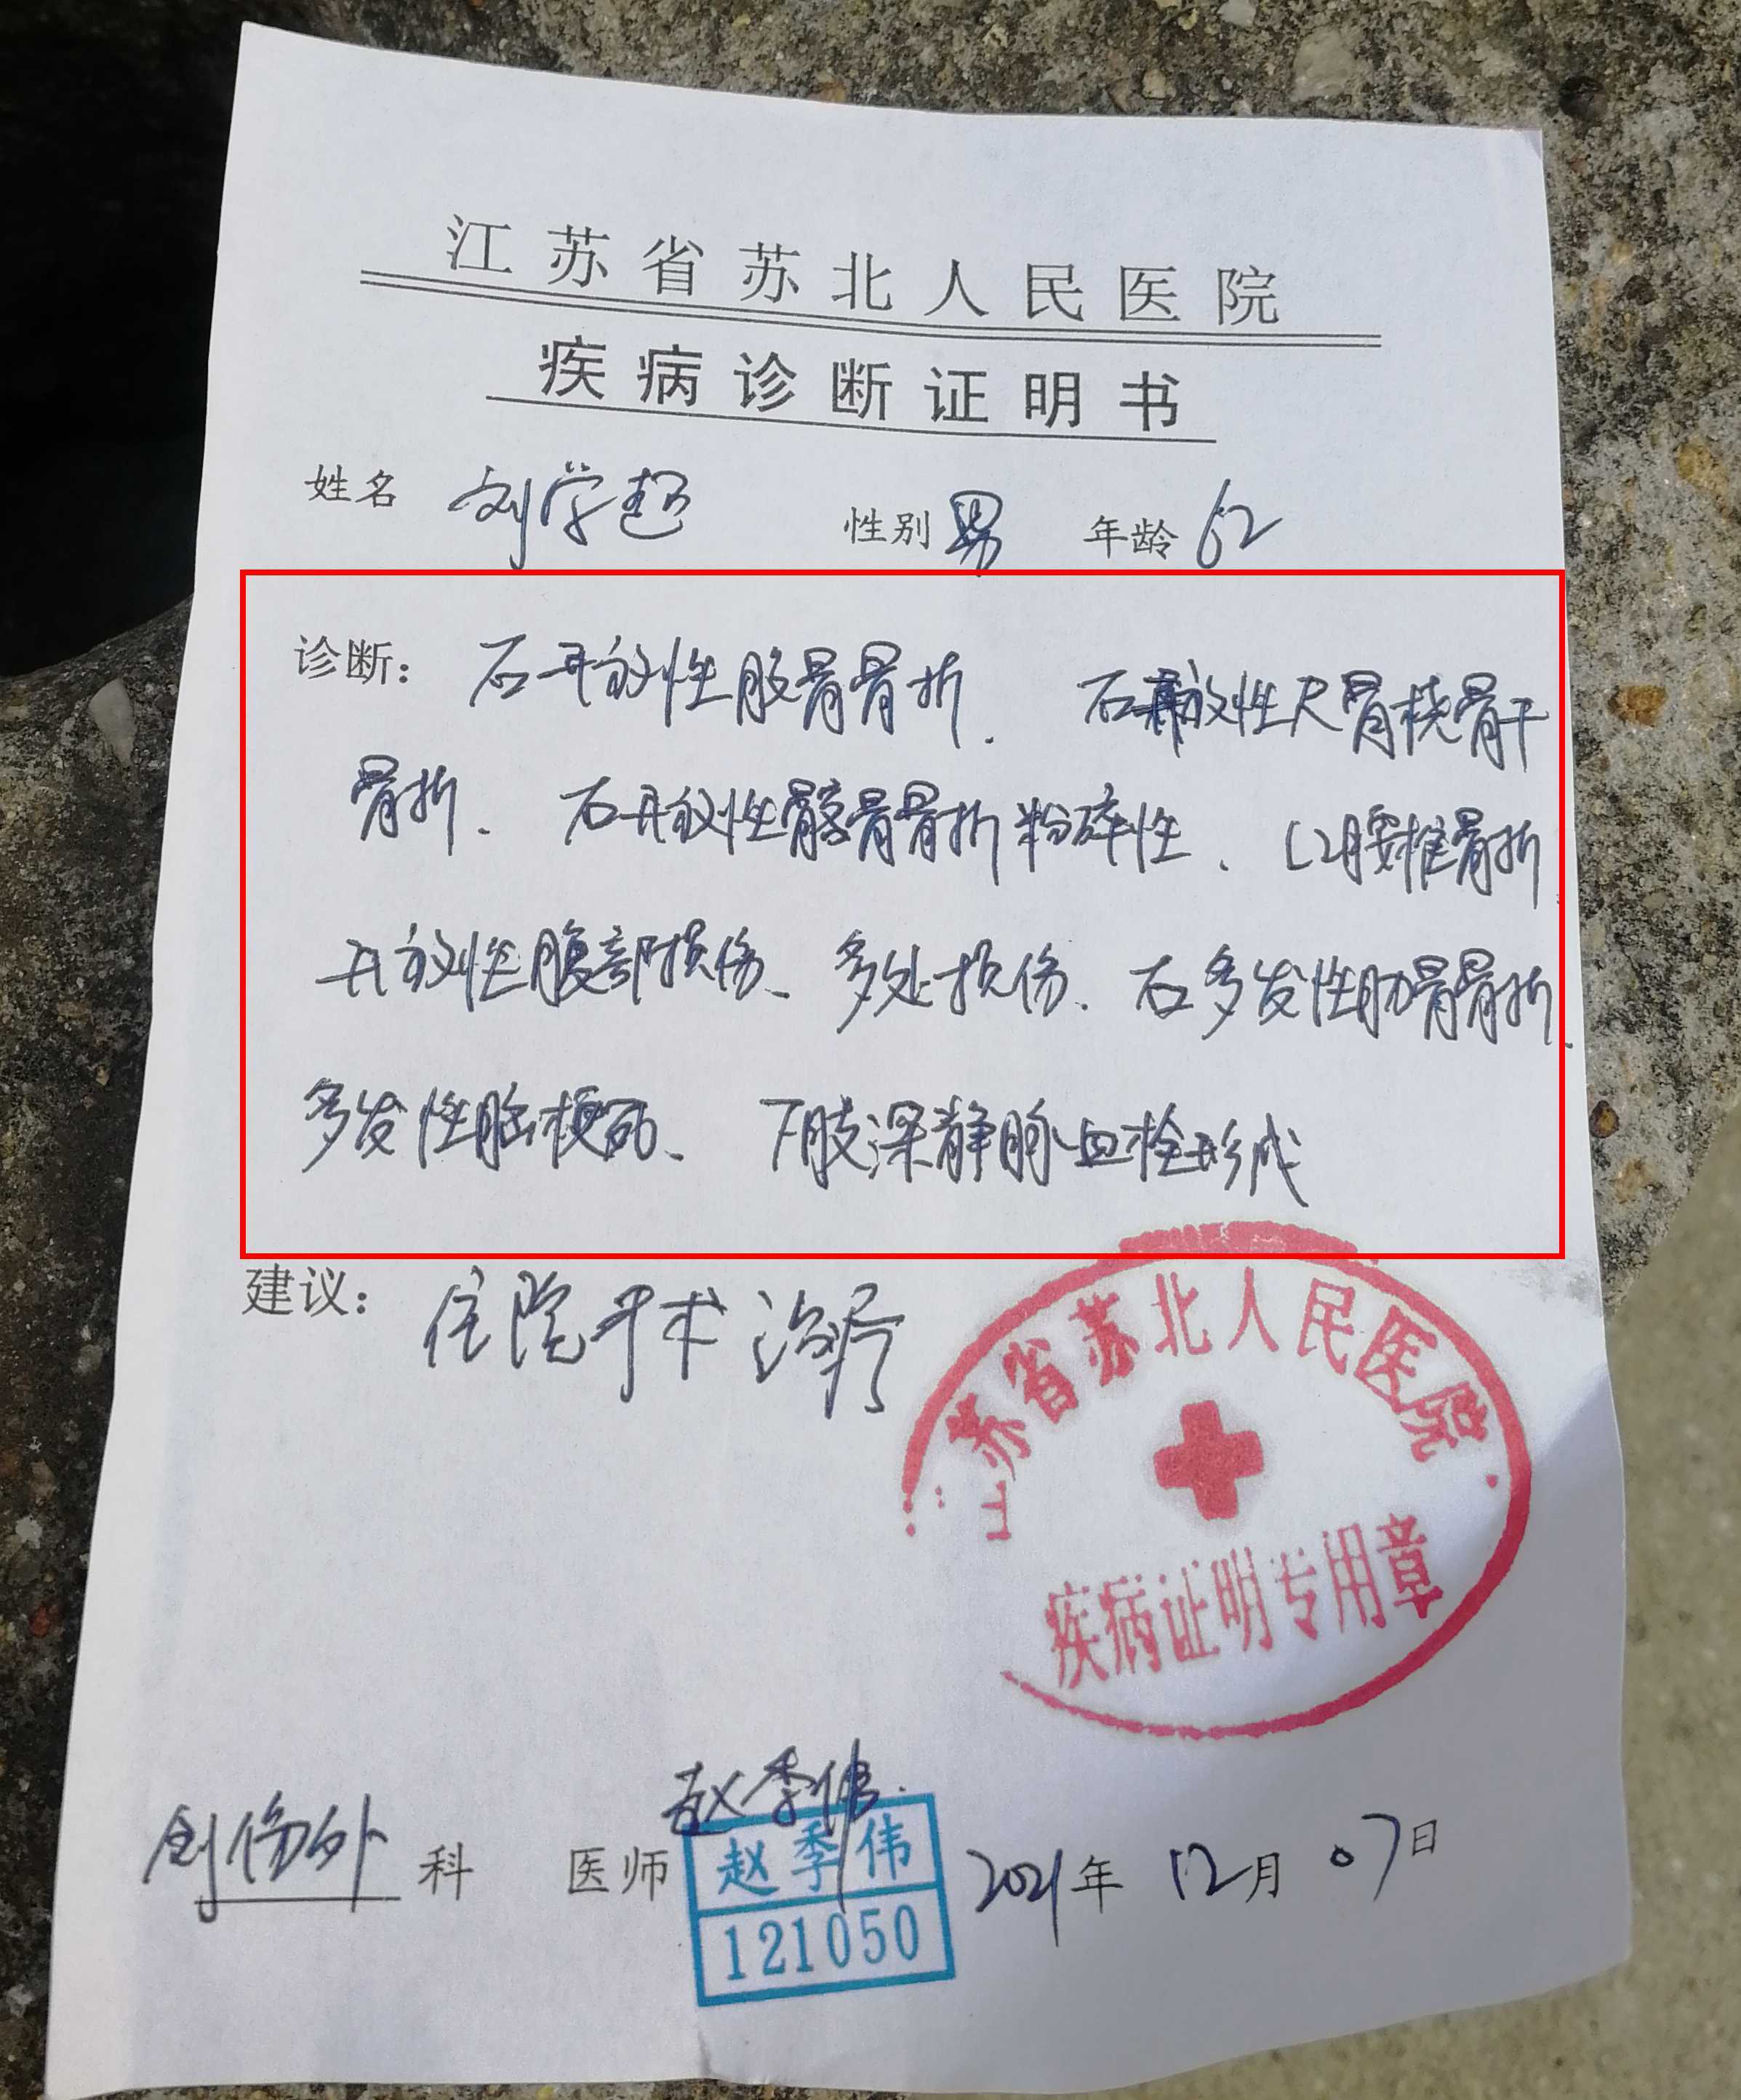 江苏省苏北人民医院
疾病诊断证明书
姓名 刘学超 性别 男 年龄 62
诊断: 右开放性股骨骨折、 右开放性尺骨桡骨干
骨折、 右开放性髌骨骨折粉碎性、 L2腰椎骨折、
开放性腹部损伤、 多处损伤、 右多发性肋骨骨折、
多发性脑梗死、 下肢深静脉血栓形成
建议: 住院手术治疗
江苏省苏北人民医院
疾病证明专用章
创伤外 科 医师 赵季伟 2021年 12月 07日
赵季伟
121050